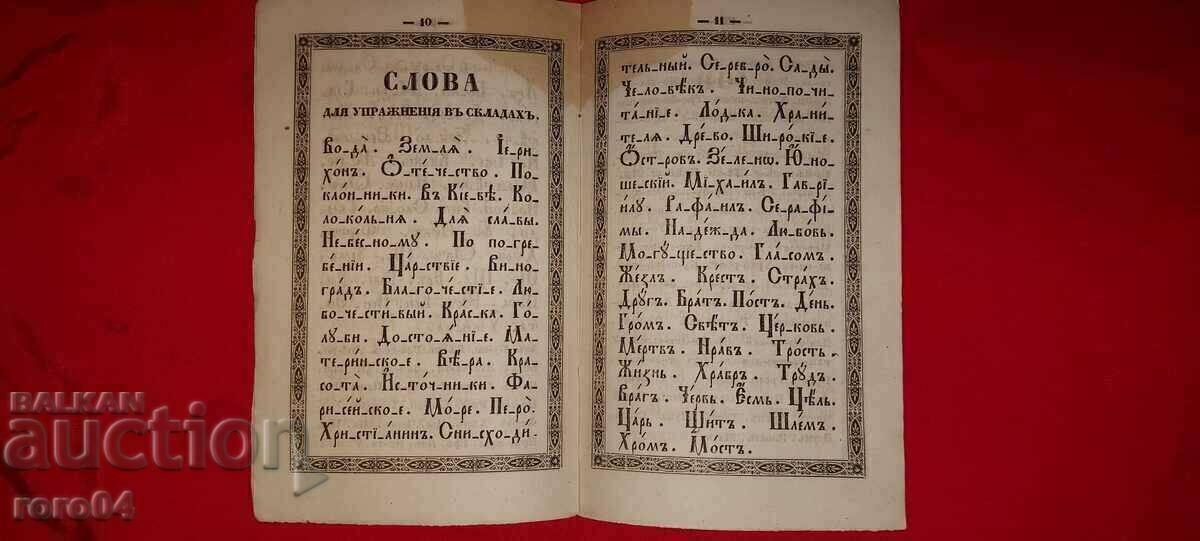 — 10 —
СЛОВА
ДЛЯ УПРАЖНЕНІЯ ВЪ СКЛАДАХЪ.
Во-да̀. Зем-лѧ̀. Іе-ри-
хо́нъ. Ѻ-те́-че-ство. По-
кло́н-ни-ки. Въ Кі́е-вѣ. Ко-
ло-ко́ль-нѧ. Длѧ сла́-вы.
Не-бе́с-но-му. По по-гре-
бе́-нїи. Ца́р-ствїе. Ви-но-
гра́дъ. Бла-го-че́-стї-е. Лю-
бо-че-сти́-вый. Кра́с-ка. Го́-
лу-би. До-сто-ѧ́-нї-е. Ма-
те-ри́н-ско-е. Вѣ́-ра. Кра-
со-та̀. Ис-то́ч-ни-ки. Фа-
ри-се́й-ско-е. Мо́-ре. Пе-ро̀.
Хри-стї-а́нинъ. Снис-хо-ди́-
— 11 —
тель-ный. Се-реб-ро̀. Са-ды̀.
Че-ло-вѣ́къ. Чи-но-по-чи-
та́-нї-е. Ло́д-ка. Хра-ни́-
те-лѧ. Дре́-во. Ши-ро́-кї-е.
Ѻ́ст-ровъ. Зе́-ле-нѡ. Ю́-но-
ше-скїй. Мі-ха-и́лъ. Гав-рї-
и́лу. Ра-фа́-илъ. Се-ра-фі́-
мы. На-де́ж-да. Лю-бо́вь.
Мо-гу́-ще-ство. Гла́-сомъ.
Же́злъ. Кре́стъ. Стра́хъ.
Дру́гъ. Бра́тъ. По́стъ. День.
Гро́мъ. Свѣ́тъ. Це́р-ковь.
Ме́ртвъ. Нра́въ. Тро́сть.
Жи́знь. Хра́бръ. Тру́дъ.
Вра́гъ. Че́рвь. Е́смь. Цѣ́ль.
Ца́рь. Щи́тъ. Шле́мъ.
Хро́мъ. Мо́стъ.
BALKAN
auction
roro04